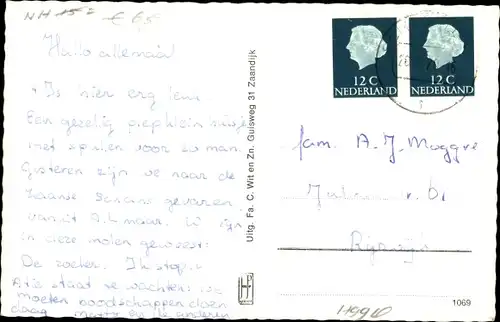 NH 15=
€ 65
Hallo allemaal
Is hier erg leuk
Een gezellig piepklein huisje
met spullen voor 20 man.
Gisteren zijn we naar de
Zaanse Schans gevaren
vanuit Alkmaar. Wij zijn
in deze molen geweest:
De Zoeker. Ik stop.
Atie staat te wachten: we
moeten boodschappen doen
daag
en de anderen
Uitg. Fa. C. Wit en Zn. Guisweg 31 Zaandijk
12 C
NEDERLAND
12 C
NEDERLAND
fam. A. J. Moggré
Rijswijk
1069